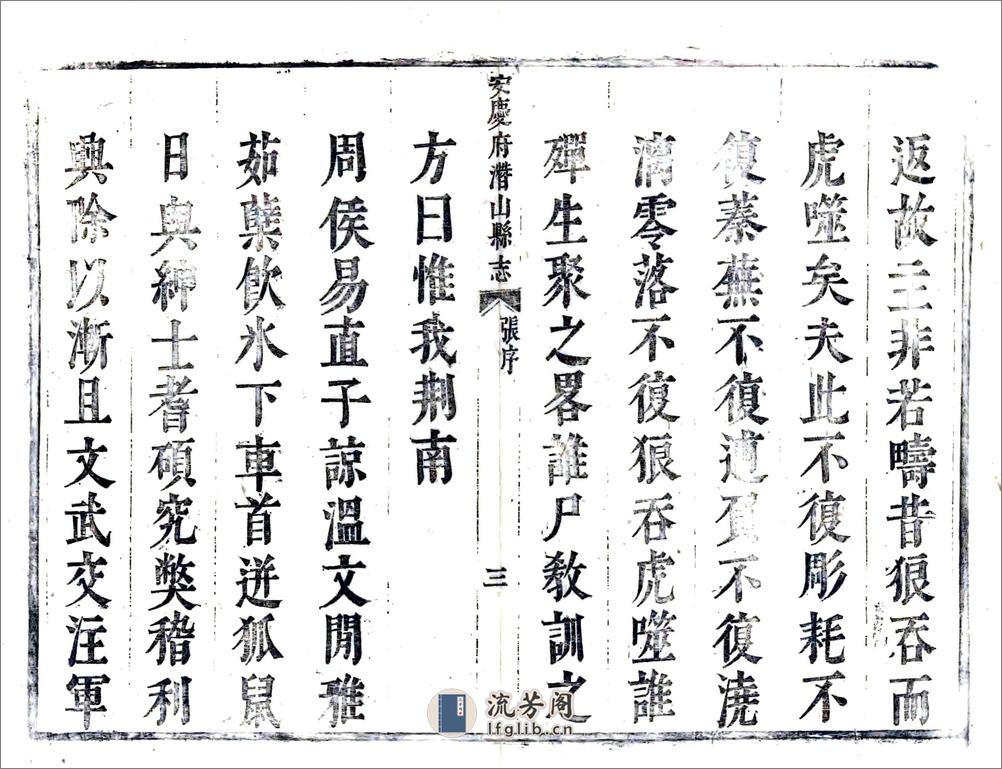 返故土非若疇昔狼吞而
虎噬矣夫此不復彫耗不
復蓁蕪不復逋負不復澆
漓零落不復狼吞虎噬誰
殫生聚之畧誰尸教訓之
安慶府潛山縣志 張序 三
方曰惟我荆南
周侯易直子諒溫文閒雅
茹櫱飲氷下車首迸狐鼠
日與紳士耆碩究獘稽利
興除以漸且文武交注軍
流芳阁
lfglib.cn